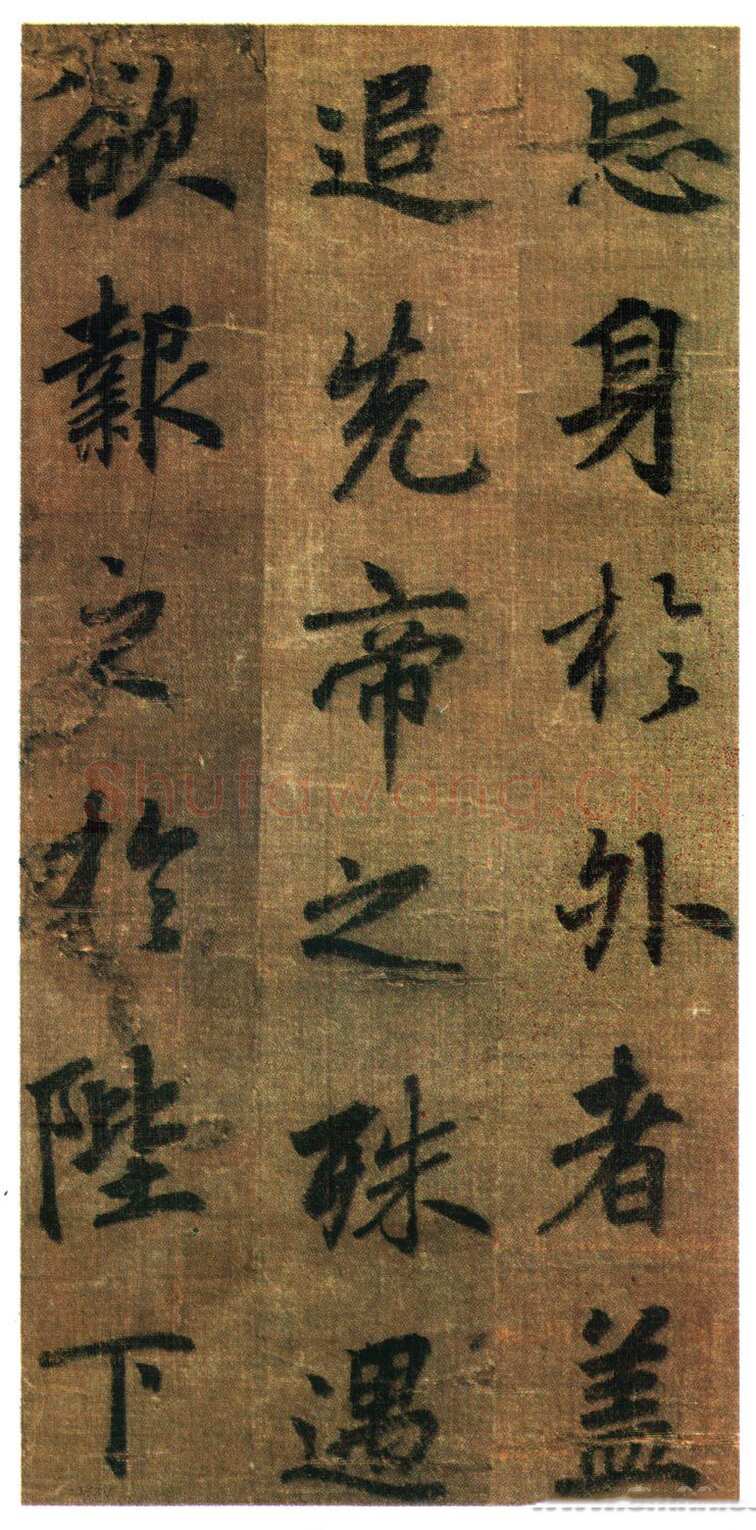 忘身於外者盖
追先帝之殊遇
欲報之於陛下
Shufawang.CN